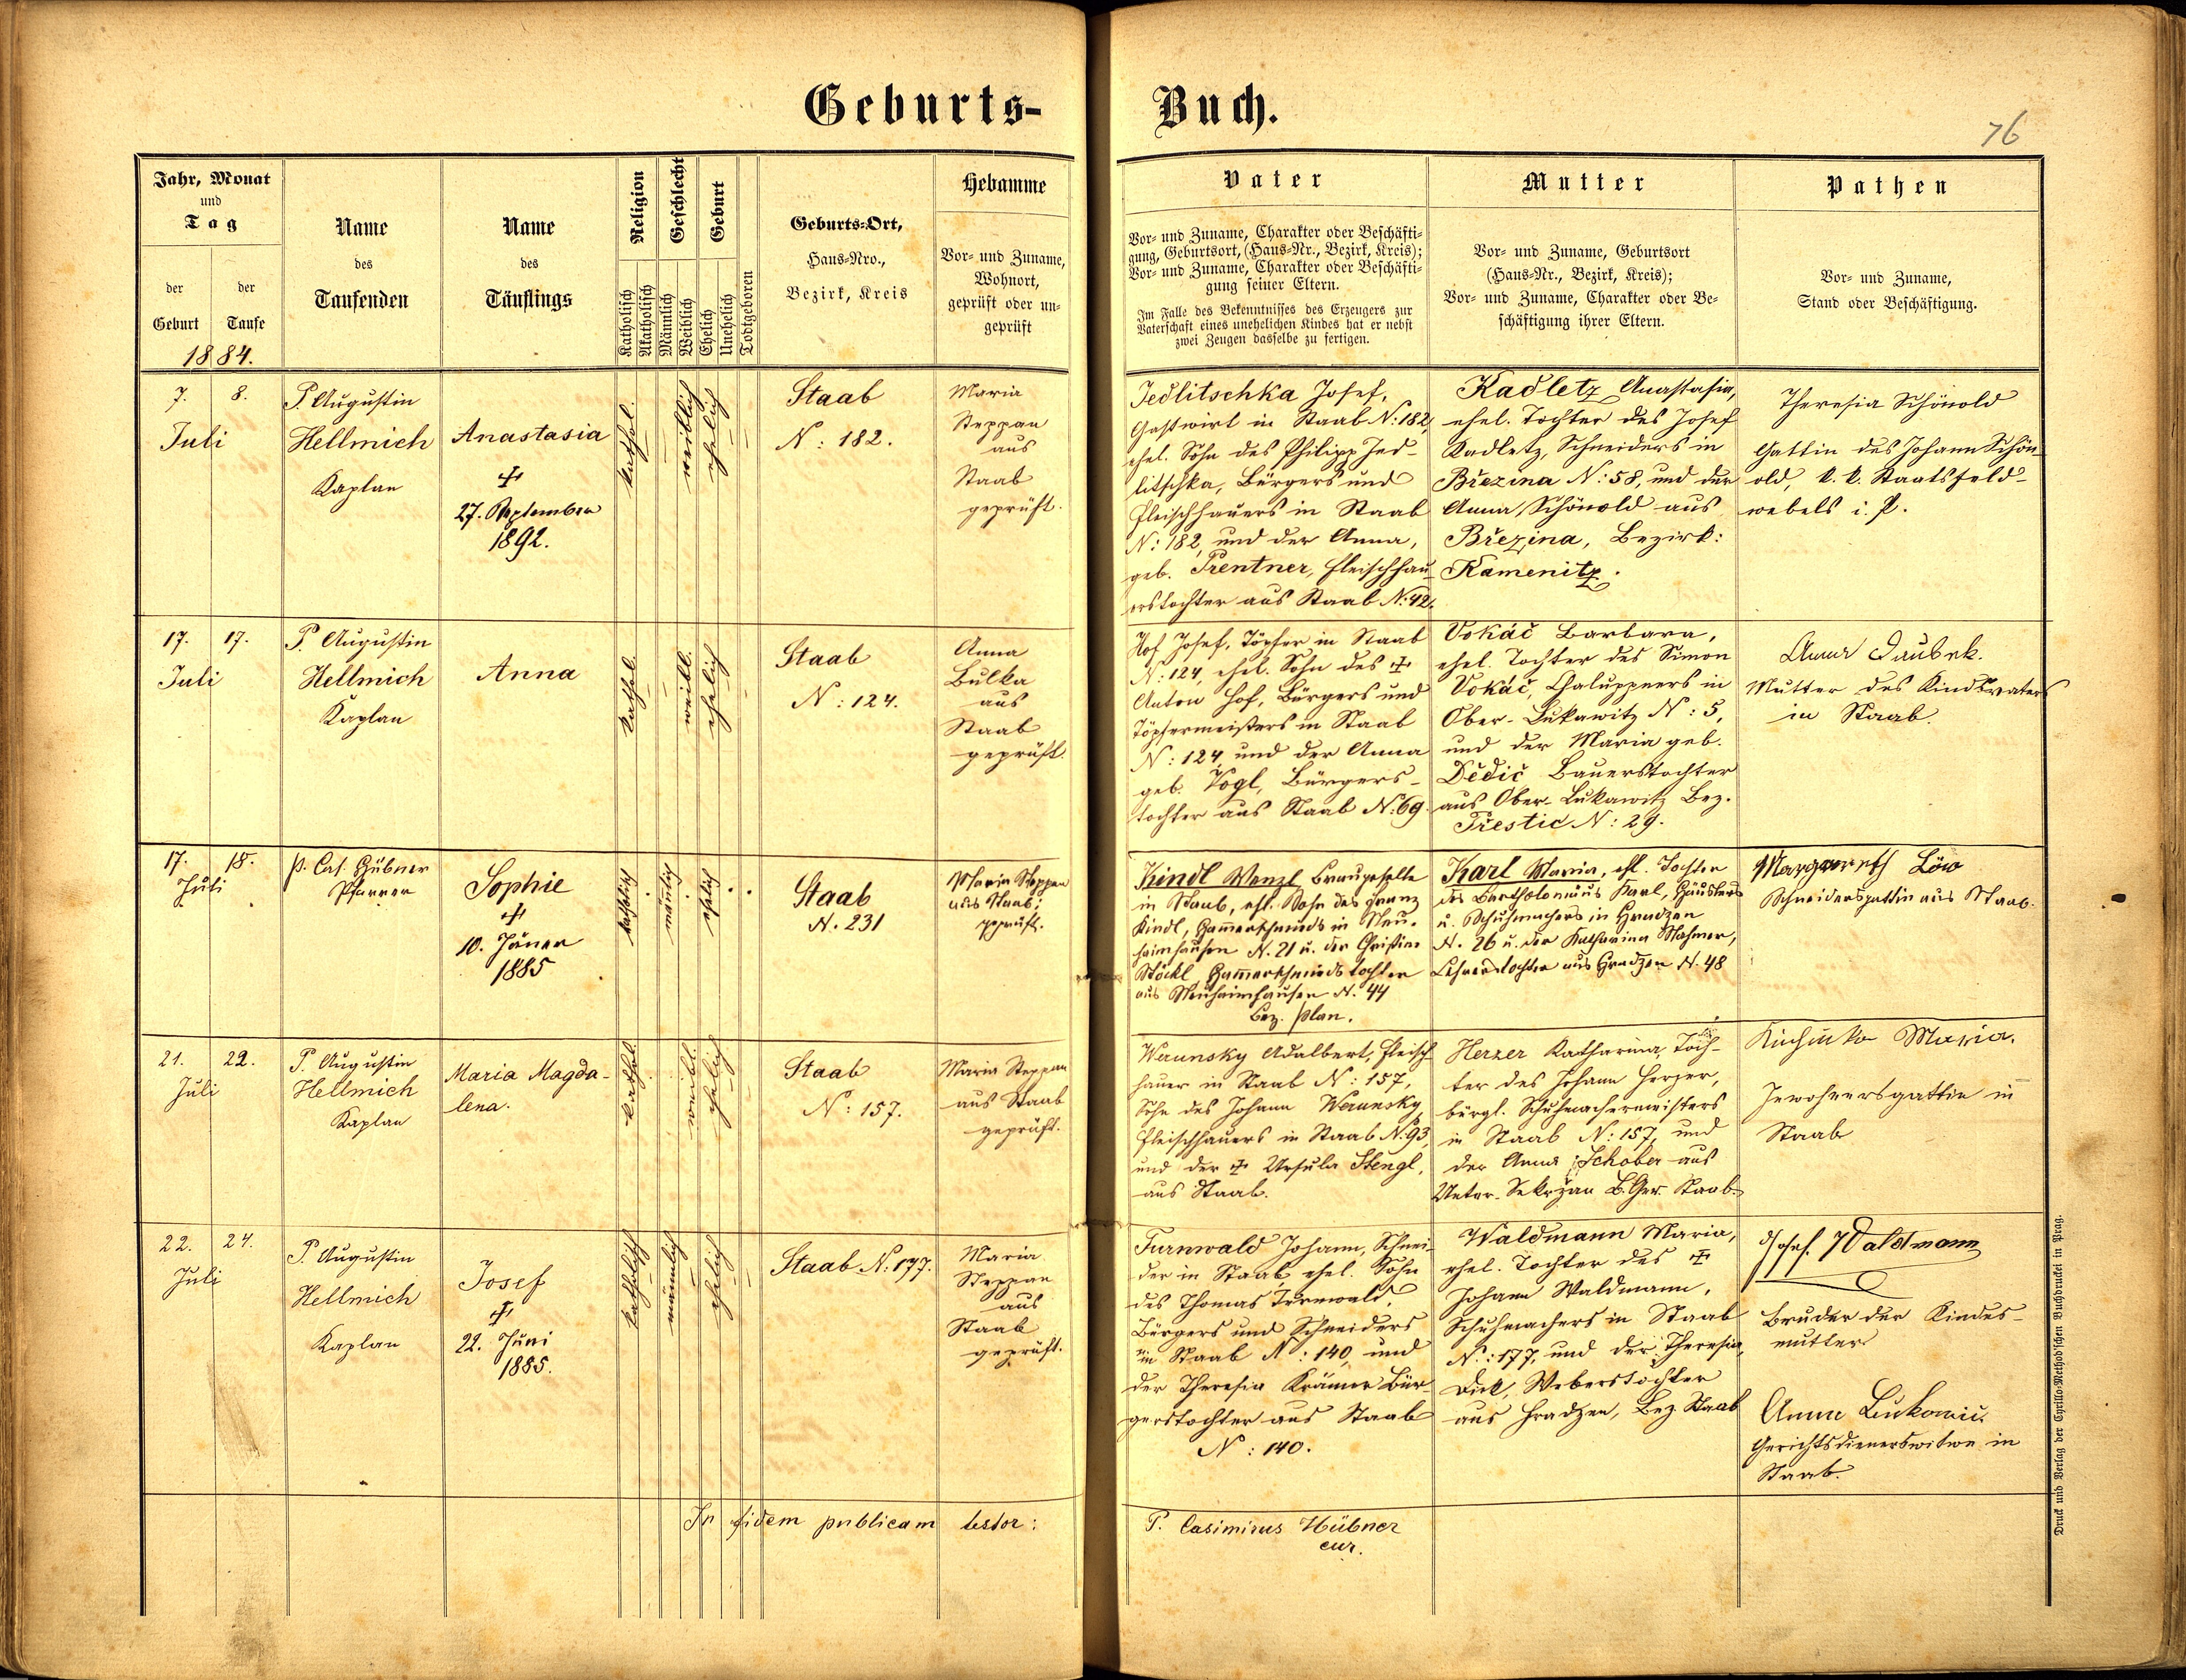 Geburts-
Buch.
76
Jahr, Monat
und
Tag
der
Geburt
der
Taufe
1884.
Name
des
Taufenden
Name
des
Täuflings
Religion
Katholisch
Akatholisch
Geschlecht
Männlich
Weiblich
Geburt
Ehelich
Unehelich
Todtgeboren
Geburts-Ort,
Haus-Nro.,
Bezirk, Kreis
Hebamme
Vor- und Zuname,
Wohnort,
geprüft oder un-
geprüft
Vater
Vor- und Zuname, Charakter oder Beschäfti-
gung, Geburtsort, (Haus-Nr., Bezirk, Kreis);
Vor- und Zuname, Charakter oder Beschäfti-
gung seiner Eltern.
Im Falle des Bekenntnisses des Erzeugers zur
Vaterschaft eines unehelichen Kindes hat er nebst
zwei Zeugen dasselbe zu fertigen.
Mutter
Vor- und Zuname, Geburtsort
(Haus-Nr., Bezirk, Kreis);
Vor- und Zuname, Charakter oder Be-
schäftigung ihrer Eltern.
Pathen
Vor- und Zuname,
Stand oder Beschäftigung.
7. 8.
Juli
P. Augustin
Hellmich
Kaplan
Anastasia
27. September
1892.
kathol.
weiblich
ehelich
Staab
N: 182.
Maria
Steppan
aus
Staab
geprüft.
Jedlitschka Josef,
Gastwirt in Staab N: 182,
ehel. Sohn des Philipp Jed-
litschka, Bürgers und
Fleischhauers in Staab
N: 182, und der Anna,
geb. Trentner, Fleischhau-
erstochter aus Staab N: 42.
Kadletz Anastasia,
ehel. Tochter des Josef
Kadletz, Schneiders in
Březina N: 58, und der
Anna Schönold aus
Březina, Bezirk:
Kamenitz.
Theresia Schönold
Gattin des Johann Schön-
old, k. k. Staatsfeld-
webels i. P.
17. 17.
Juli
P. Augustin
Hellmich
Kaplan
Anna
kathol.
weibl.
ehelich
Staab
N: 124.
Anna
Bulka
aus
Staab
geprüft.
Hof Josef, Töpfer in Staab
N: 124, ehel. Sohn des
Anton Hof, Bürgers und
Töpfermeisters in Staab
N: 124, und der Anna
geb. Vogl, Bürgers-
tochter aus Staab N: 69.
Vokáč Barbara,
ehel. Tochter des Simon
Vokáč, Chaluppners in
Ober-Lukawitz N: 5,
und der Maria geb.
Dědič Bauerstochter
aus Ober-Lukawitz Bez.
Přestic N: 29.
Anna Daubek.
Mutter des Kindsvaters
in Staab.
17. 18.
Juli
P. Cas. Hübner
Pfarrer
Sophie
10. Jäner
1885
katholisch
männlich
ehelich
Staab
N. 231
Maria Steppan
aus Staab;
geprüft.
Kindl Wenzl Braugeselle
in Staab, ehl. Sohn des Franz
Kindl, Hammerschmieds in Neu-
fürstenhütten N. 21 u. der Christine
Stöckl Hammerschmiedstochter
N. 44
Bez. Plan.
Karl Maria, ehl. Tochter
des Bartholomäus Karl, Häuslers
u. Schuhmachers in Hradzen
N. 26 u. der Katharina
Lehrerstochter aus Hradzen N. 48
Margareth Löw
Schneidersgattin aus Staab.
21. 22.
Juli
P. Augustin
Hellmich
Kaplan
Maria Magda-
lena.
kathol.
weibl.
ehelich
Staab
N: 157.
Maria Steppan
aus Staab
geprüft.
Werunsky Adalbert, Fleisch-
hauer in Staab N: 157,
Sohn des Johann Werunsky
Fleischhauers in Staab N. 93,
und der Ursula Stengl,
aus Staab.
Herzer Katharina, Toch-
ter des Johann Herzer,
bürgl. Schuhmachermeisters
in Staab N: 157, und
der Anna Schober aus
Unter-Sekržan B. Ger. Staab.
Maria.
Inwohnersgattin in
Staab
22. 24.
Juli
P. Augustin
Hellmich
Kaplan
Josef
22. Juni
1885.
katholisch
männlich
ehelich
Staab N: 177.
Maria
Steppan
aus
Staab
geprüft.
Turnwald Johann, Schnei-
der in Staab, ehel. Sohn
des Thomas Turnwald,
Bürgers und Schneiders
in Staab N: 140, und
der Theresia Krämer Bür-
gerstochter aus Staab
N: 140.
Waldmann Maria,
ehel. Tochter des
Johann Waldmann,
Schuhmachers in Staab
N: 177, und der Theresia
Dick, Weberstochter
aus Hradzen, Bez. Staab
Josef Waldmann
Bruder der Kindes-
mutter
Anna Lukowic.
Gerichtsdienerswitwe in
Staab.
In fidem publicam testor:
P. Casimirus Hübner
cur.
Druck und Verlag der Cyrillo-Method'schen Buchdruckerei in Prag.